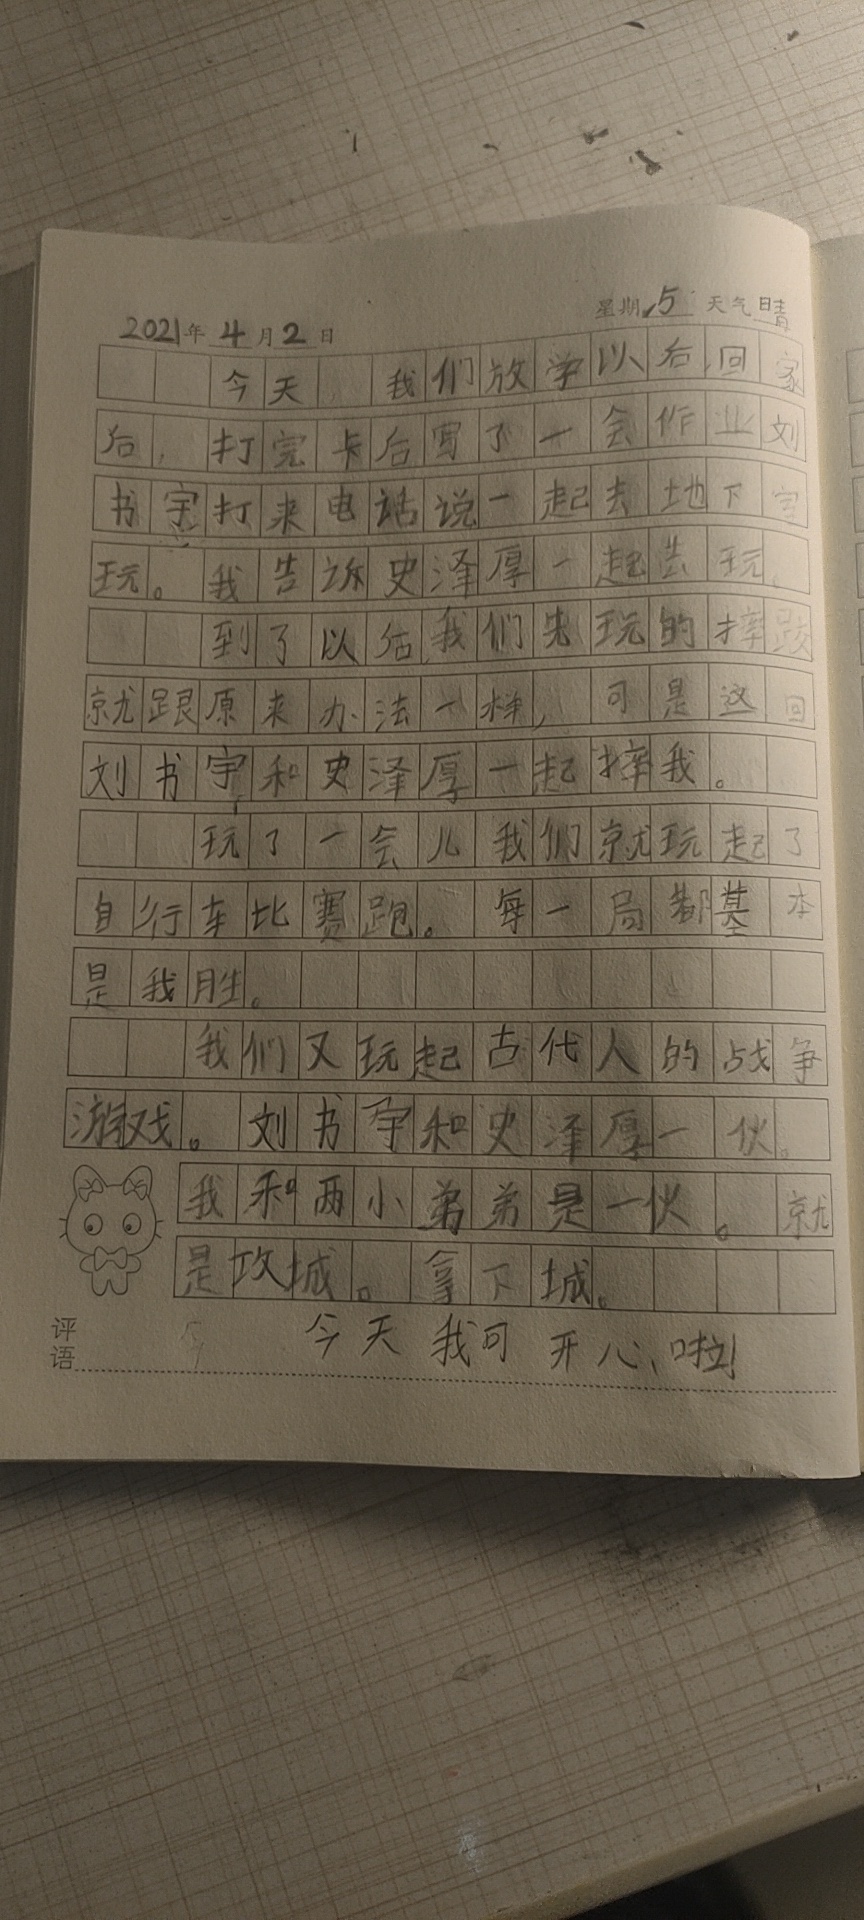 2021年4月2日 星期5 天气晴
今天,我们放学以后,回家
后,打完卡后写了一会作业刘
书宇打来电话说一起去地下室
玩。我告诉史泽厚一起去玩,
到了以后,我们先玩的摔跤
就跟原来办法一样,可是这回
刘书宇和史泽厚一起摔我。
玩了一会儿我们就玩起了
自行车比赛跑。每一局都基本
是我胜。
我们又玩起古代人的战争
游戏。刘书宇和史泽厚一伙。
我和两小弟弟是一伙。就
是攻城。拿下城。
评语 今天我可开心啦